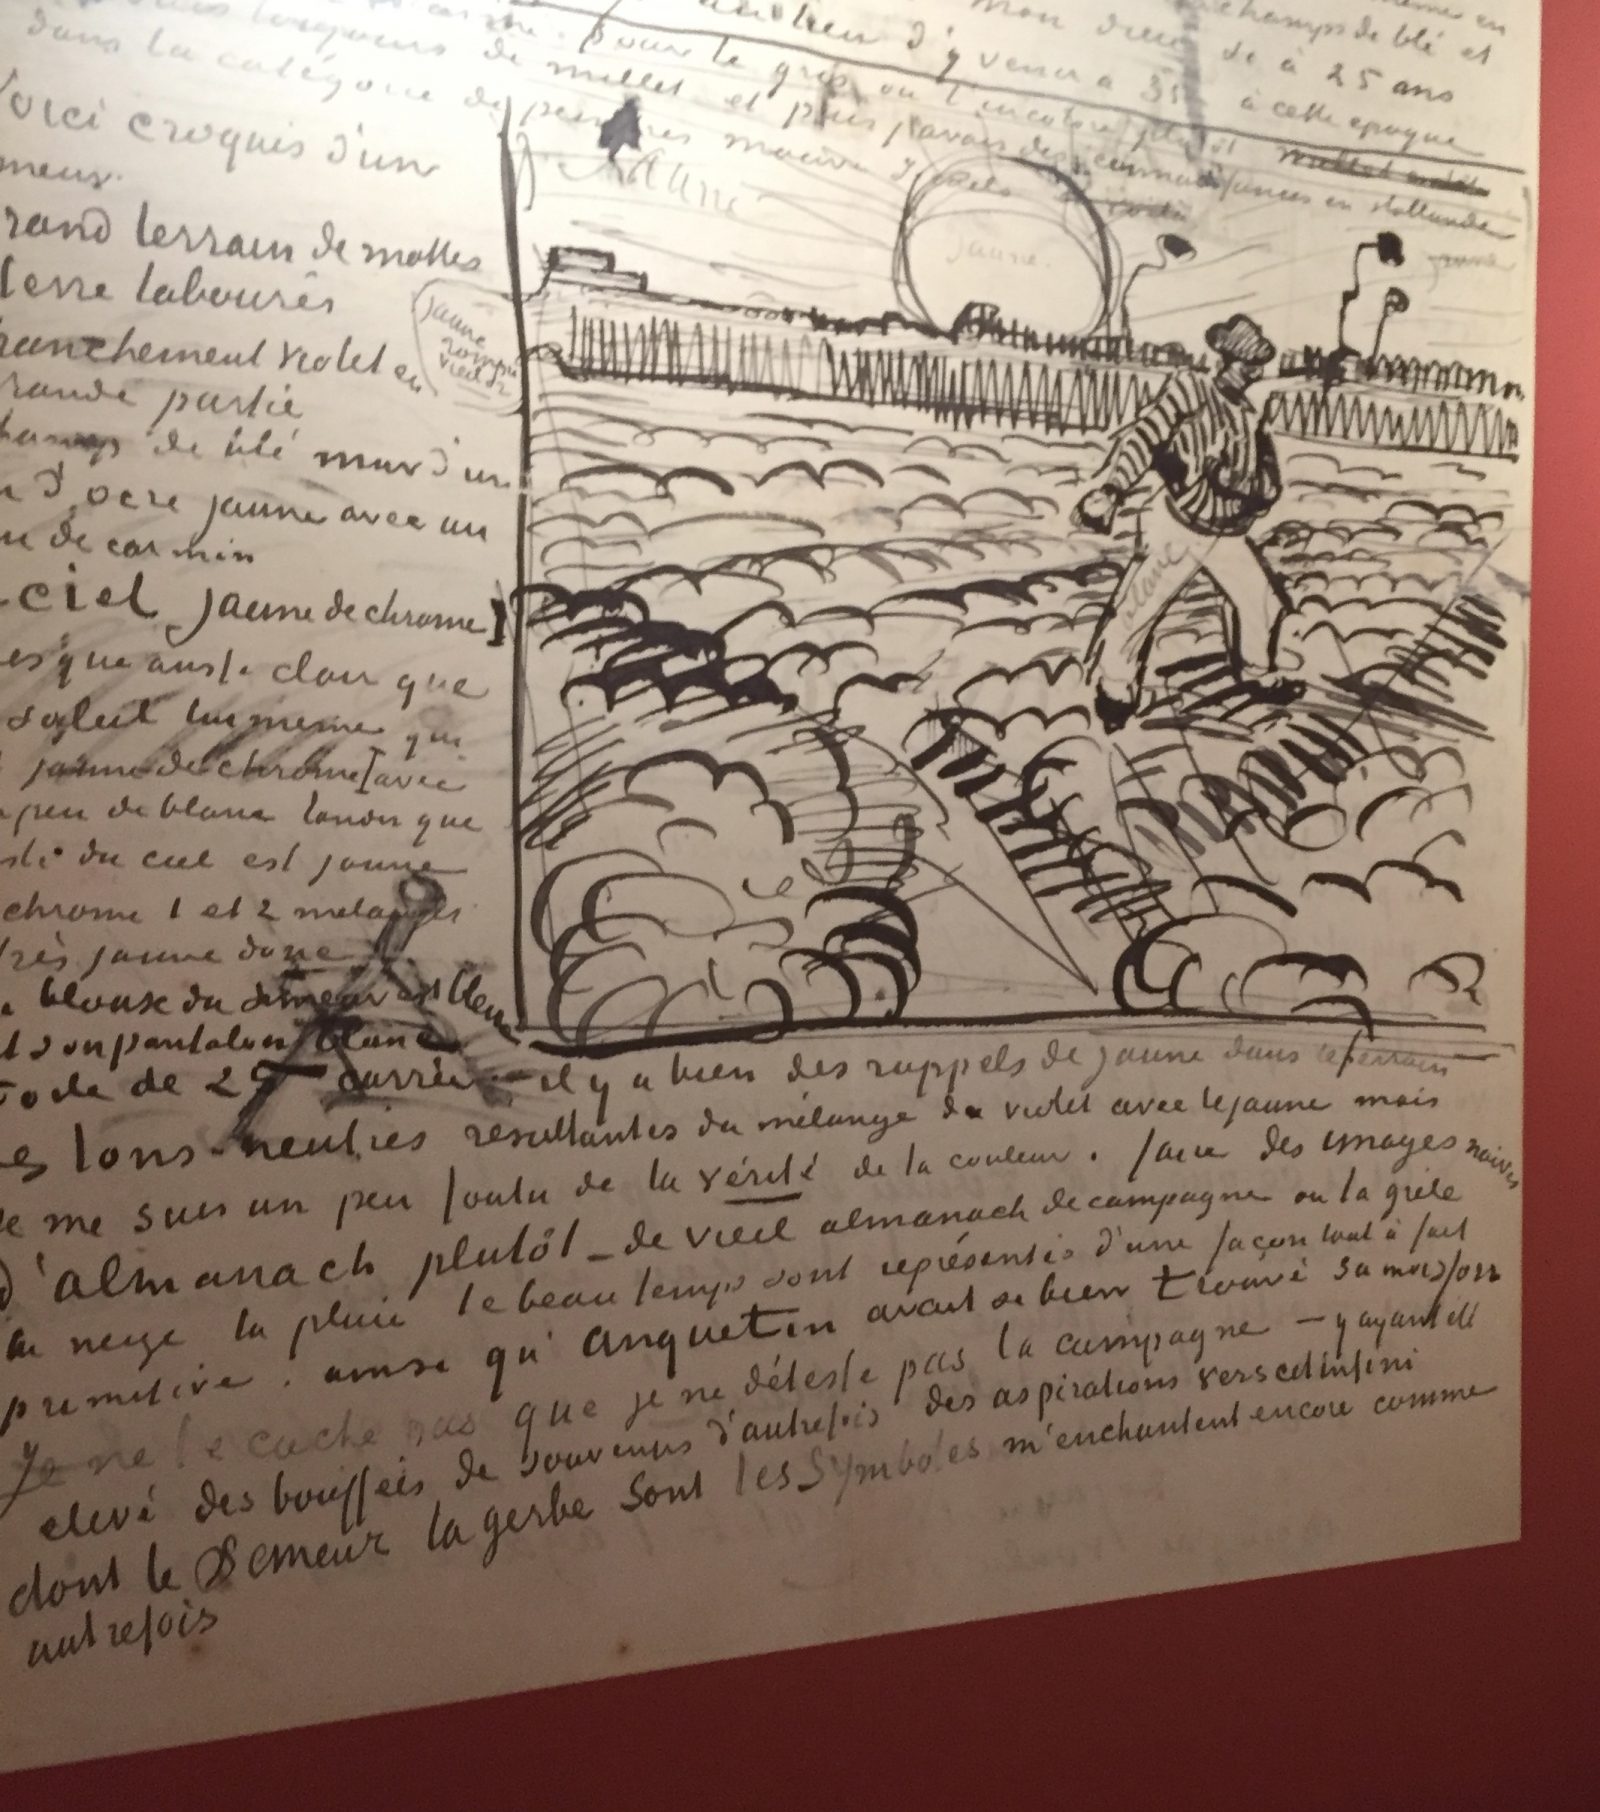 champs de blé et
d'y venir à 35 de à 25 ans
pour le gris ou l'incolore plutôt à cette époque
dans la catégorie de millet et puis j'avais des connaissances en Hollande
de peintres mauve Israels
Voici croquis d'un
meur.
rand terrain de mottes
terre labourés
franchement violet en
rande partie
hamp de blé mur d'un
n d'ocre jaune avec un
u de carmin
ciel jaune de chrome]
esque aussi clair que
soleil lui meme qui
jaune de chrome 1 avec
peu de blanc tandis que
ste du ciel est jaune
chrome 1 et 2 melangés
très jaune donc
a blouse du semeur est bleue
t son pantalon blanc
jaune
jaune.
jaune
rompu
vieil or
blanc
Toile de 25 carrée – il y a bien des rappels de jaune dans le terrain
es tons neutres resultantes du mélange du violet avec le jaune mais
Je me suis un peu foutu de la vérité de la couleur. faire des images naives
d'almanach plutôt – de vieil almanach de campagne ou la grêle
la neige la pluie le beau temps sont représentés d'une façon tout à fait
primitive. ainsi qu'Anquetin avait si bien trouvé sa moisson
Je ne te cache pas que je ne déteste pas la campagne – y ayant été
elevé des bouffées de souvenirs d'autrefois des aspirations vers cet infini
dont le Semeur la gerbe sont les symboles m'enchantent encore comme
autrefois